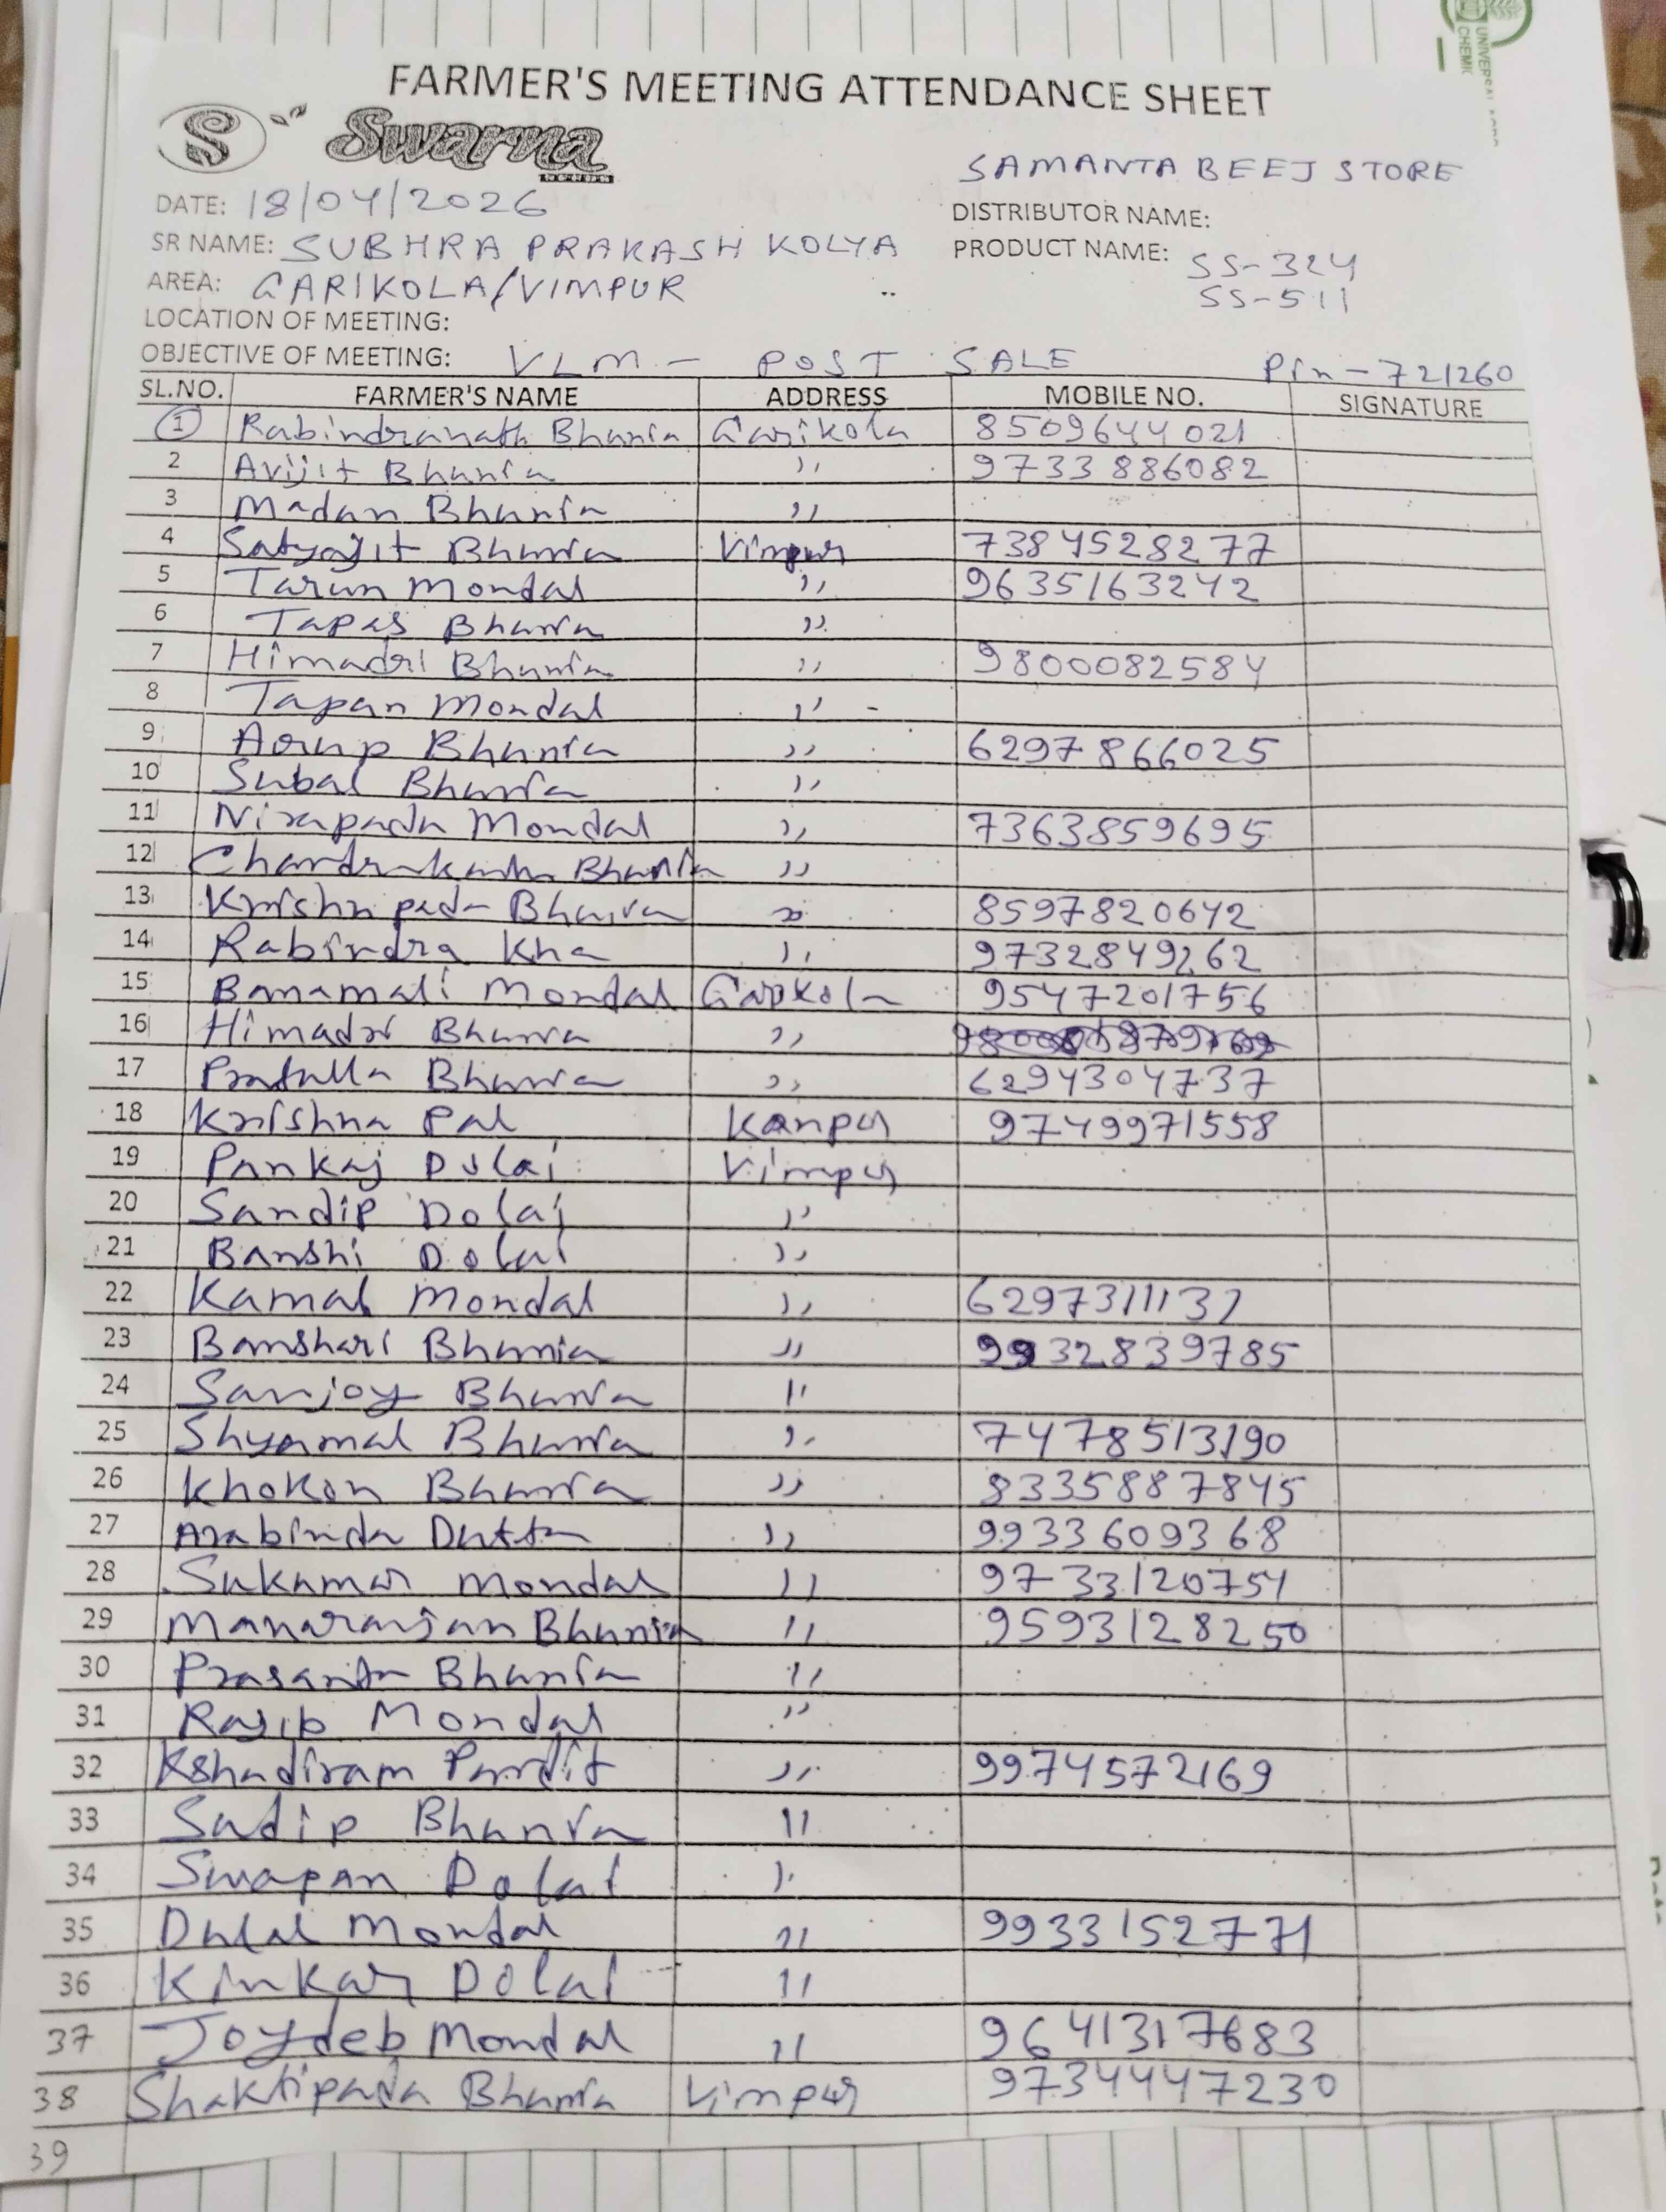 FARMER'S MEETING ATTENDANCE SHEET
S Swarna
SEEDS
SAMANTA BEEJ STORE
DATE: 18/04/2026
DISTRIBUTOR NAME:
SR NAME: SUBHRA PRAKASH KOLYA
PRODUCT NAME: SS-324
SS-511
AREA: GARIKOLA/VIMPUR
LOCATION OF MEETING:
OBJECTIVE OF MEETING: VLM - POST SALE Pin-721260
SL.NO. FARMER'S NAME ADDRESS MOBILE NO. SIGNATURE
1 Rabindranath Bhunia Garikola 8509644021
2 Avijit Bhunia ,, 9733886082
3 Madan Bhunia ,,
4 Satyajit Bhunia Vimpur 7384528277
5 Tarun Mondal ,, 9635163242
6 Tapas Bhunia ,,
7 Himadri Bhunia ,, 9800082584
8 Tapan Mondal ,,
9 Aorup Bhunia ,, 6297866025
10 Subal Bhunia ,,
11 Nirapada Mondal ,, 7363859695
12 Chandrakanta Bhunia ,,
13 Krishnapada Bhunia ,, 8597820642
14 Rabindra Kha ,, 9732849262
15 Banamali Mondal Garikola 9547201756
16 Himadri Bhunia ,,
17 Prafulla Bhunia ,, 6294304737
18 Krishna Pal Kanpur 9749971558
19 Pankaj Dolai Vimpur
20 Sandip Dolai ,,
21 Banshi Dolai ,,
22 Kamal Mondal ,, 6297311131
23 Banshari Bhunia ,, 9932839785
24 Sanjoy Bhunia ,,
25 Shyamal Bhunia ,, 7478513190
26 Khokon Bhunia ,, 8335887845
27 Arabinda Dutta ,, 9933609368
28 Sukumar Mondal ,, 9733120754
29 Manaranjan Bhunia ,, 9593128250
30 Prasanta Bhunia ,,
31 Rajib Mondal ,,
32 Kshudiram Pandit ,, 9974572169
33 Sudip Bhunia ,,
34 Swapan Dolai ,,
35 Dulal Mondal ,, 9933152771
36 Kinkar Dolai ,,
37 Joydeb Mondal ,, 9641317683
38 Shaktipada Bhunia Vimpur 9734447230
39